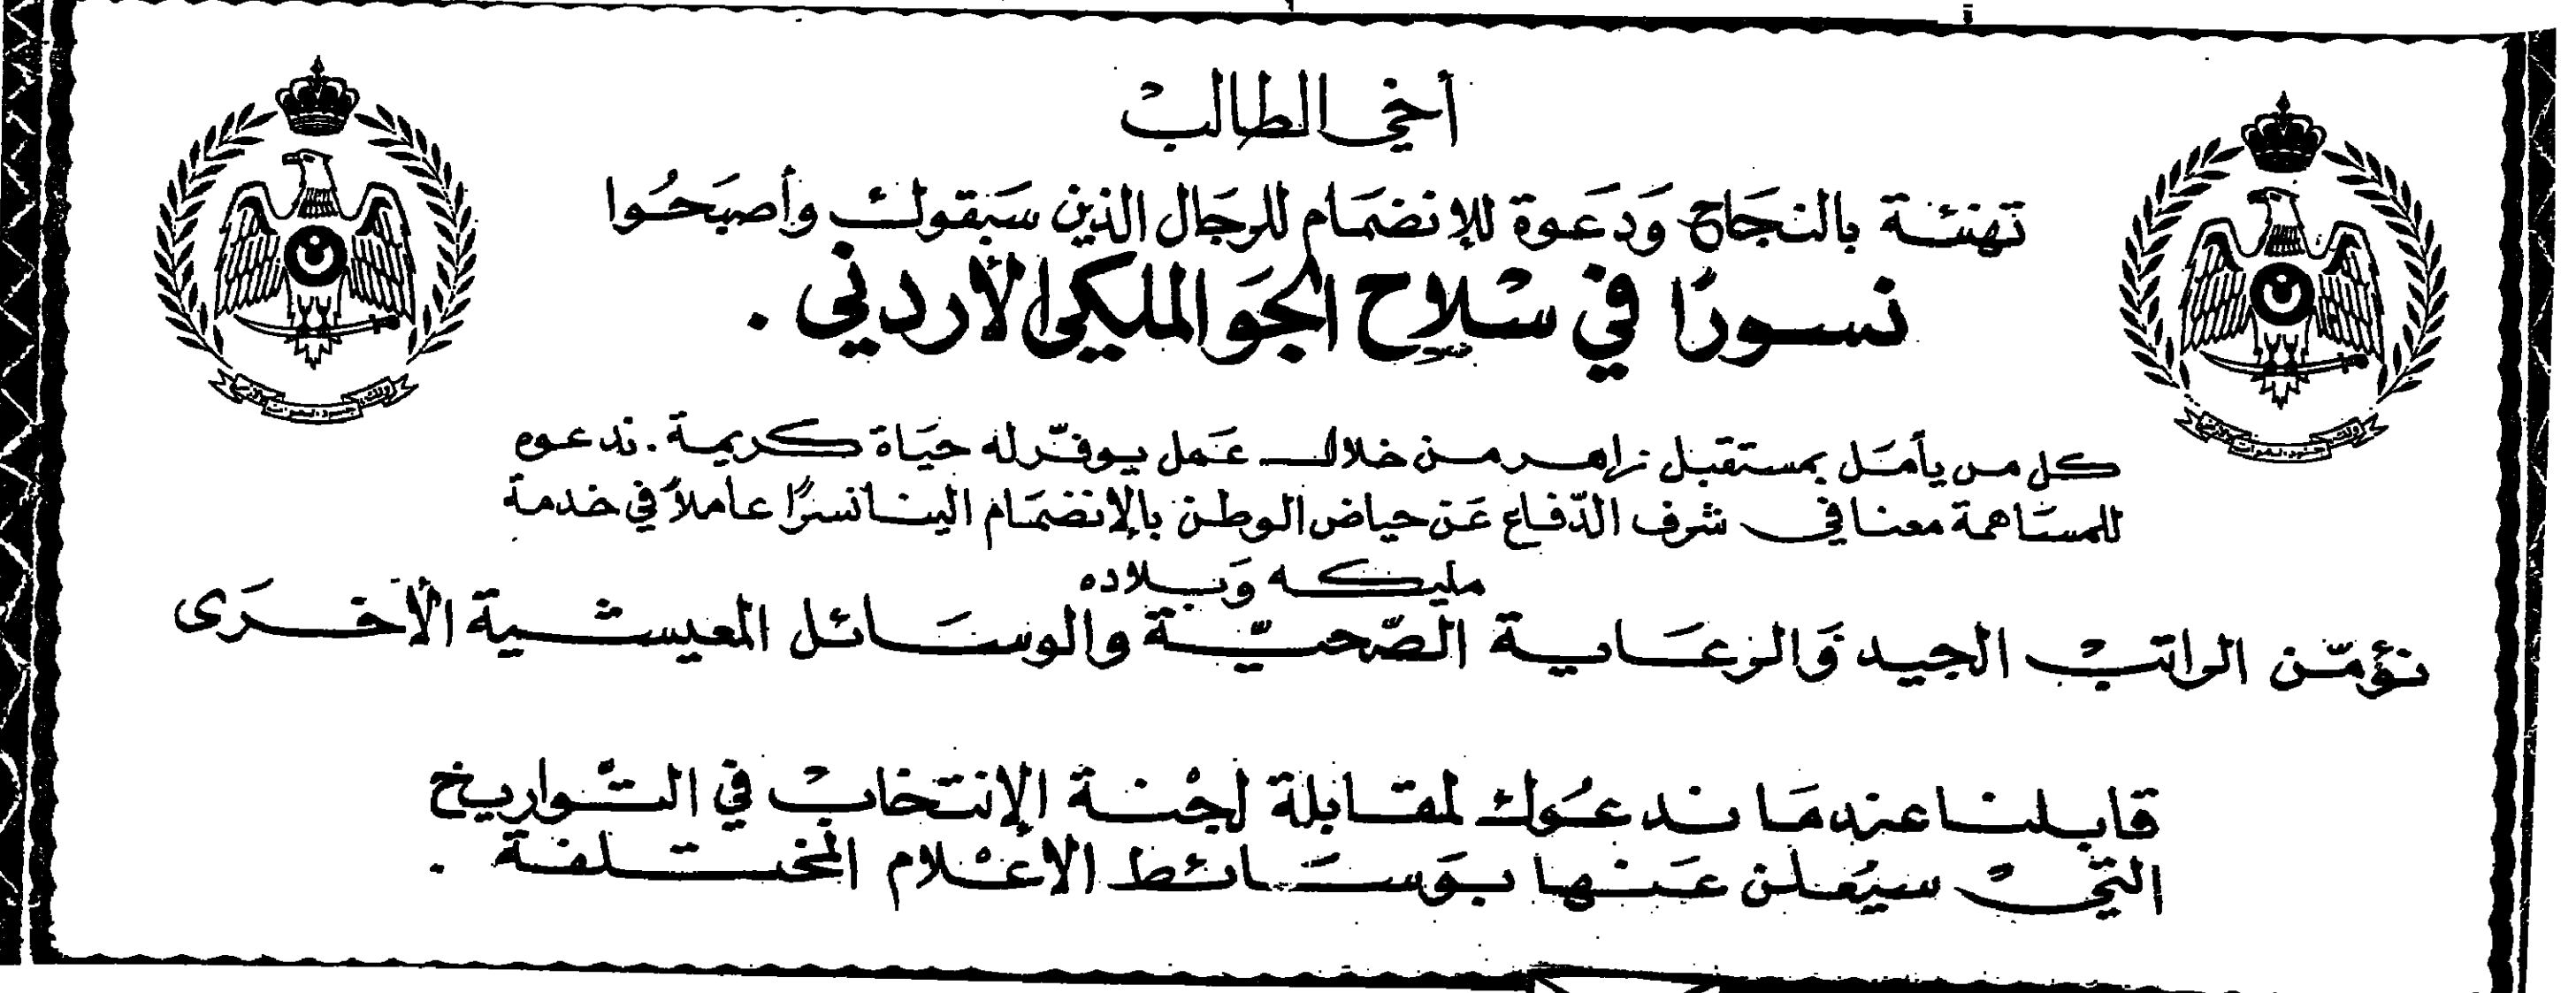 أخي الطالب
تهنئة بالنجاح ودعوة للإنضمام للرجال الذين سبقوك وأصبحوا
نسورًا في سلاح الجو الملكي الأردني .
كل من يأمل بمستقبل زاهر من خلال عمل يوفّر له حياة كريمة . ندعوه
للمساهمة معنا في شرف الدّفاع عن حياض الوطن بالإنضمام الينا نسرًا عاملاً في خدمة
مليكه وبلاده
نؤمّن الراتب الجيد والرعاية الصّحيّة والوسائل المعيشية الأخرى
قابلنا عندما ندعوك لمقابلة لجنة الإنتخاب في التواريخ
التي سيُعلن عنها بوسائط الاعلام المختلفة .